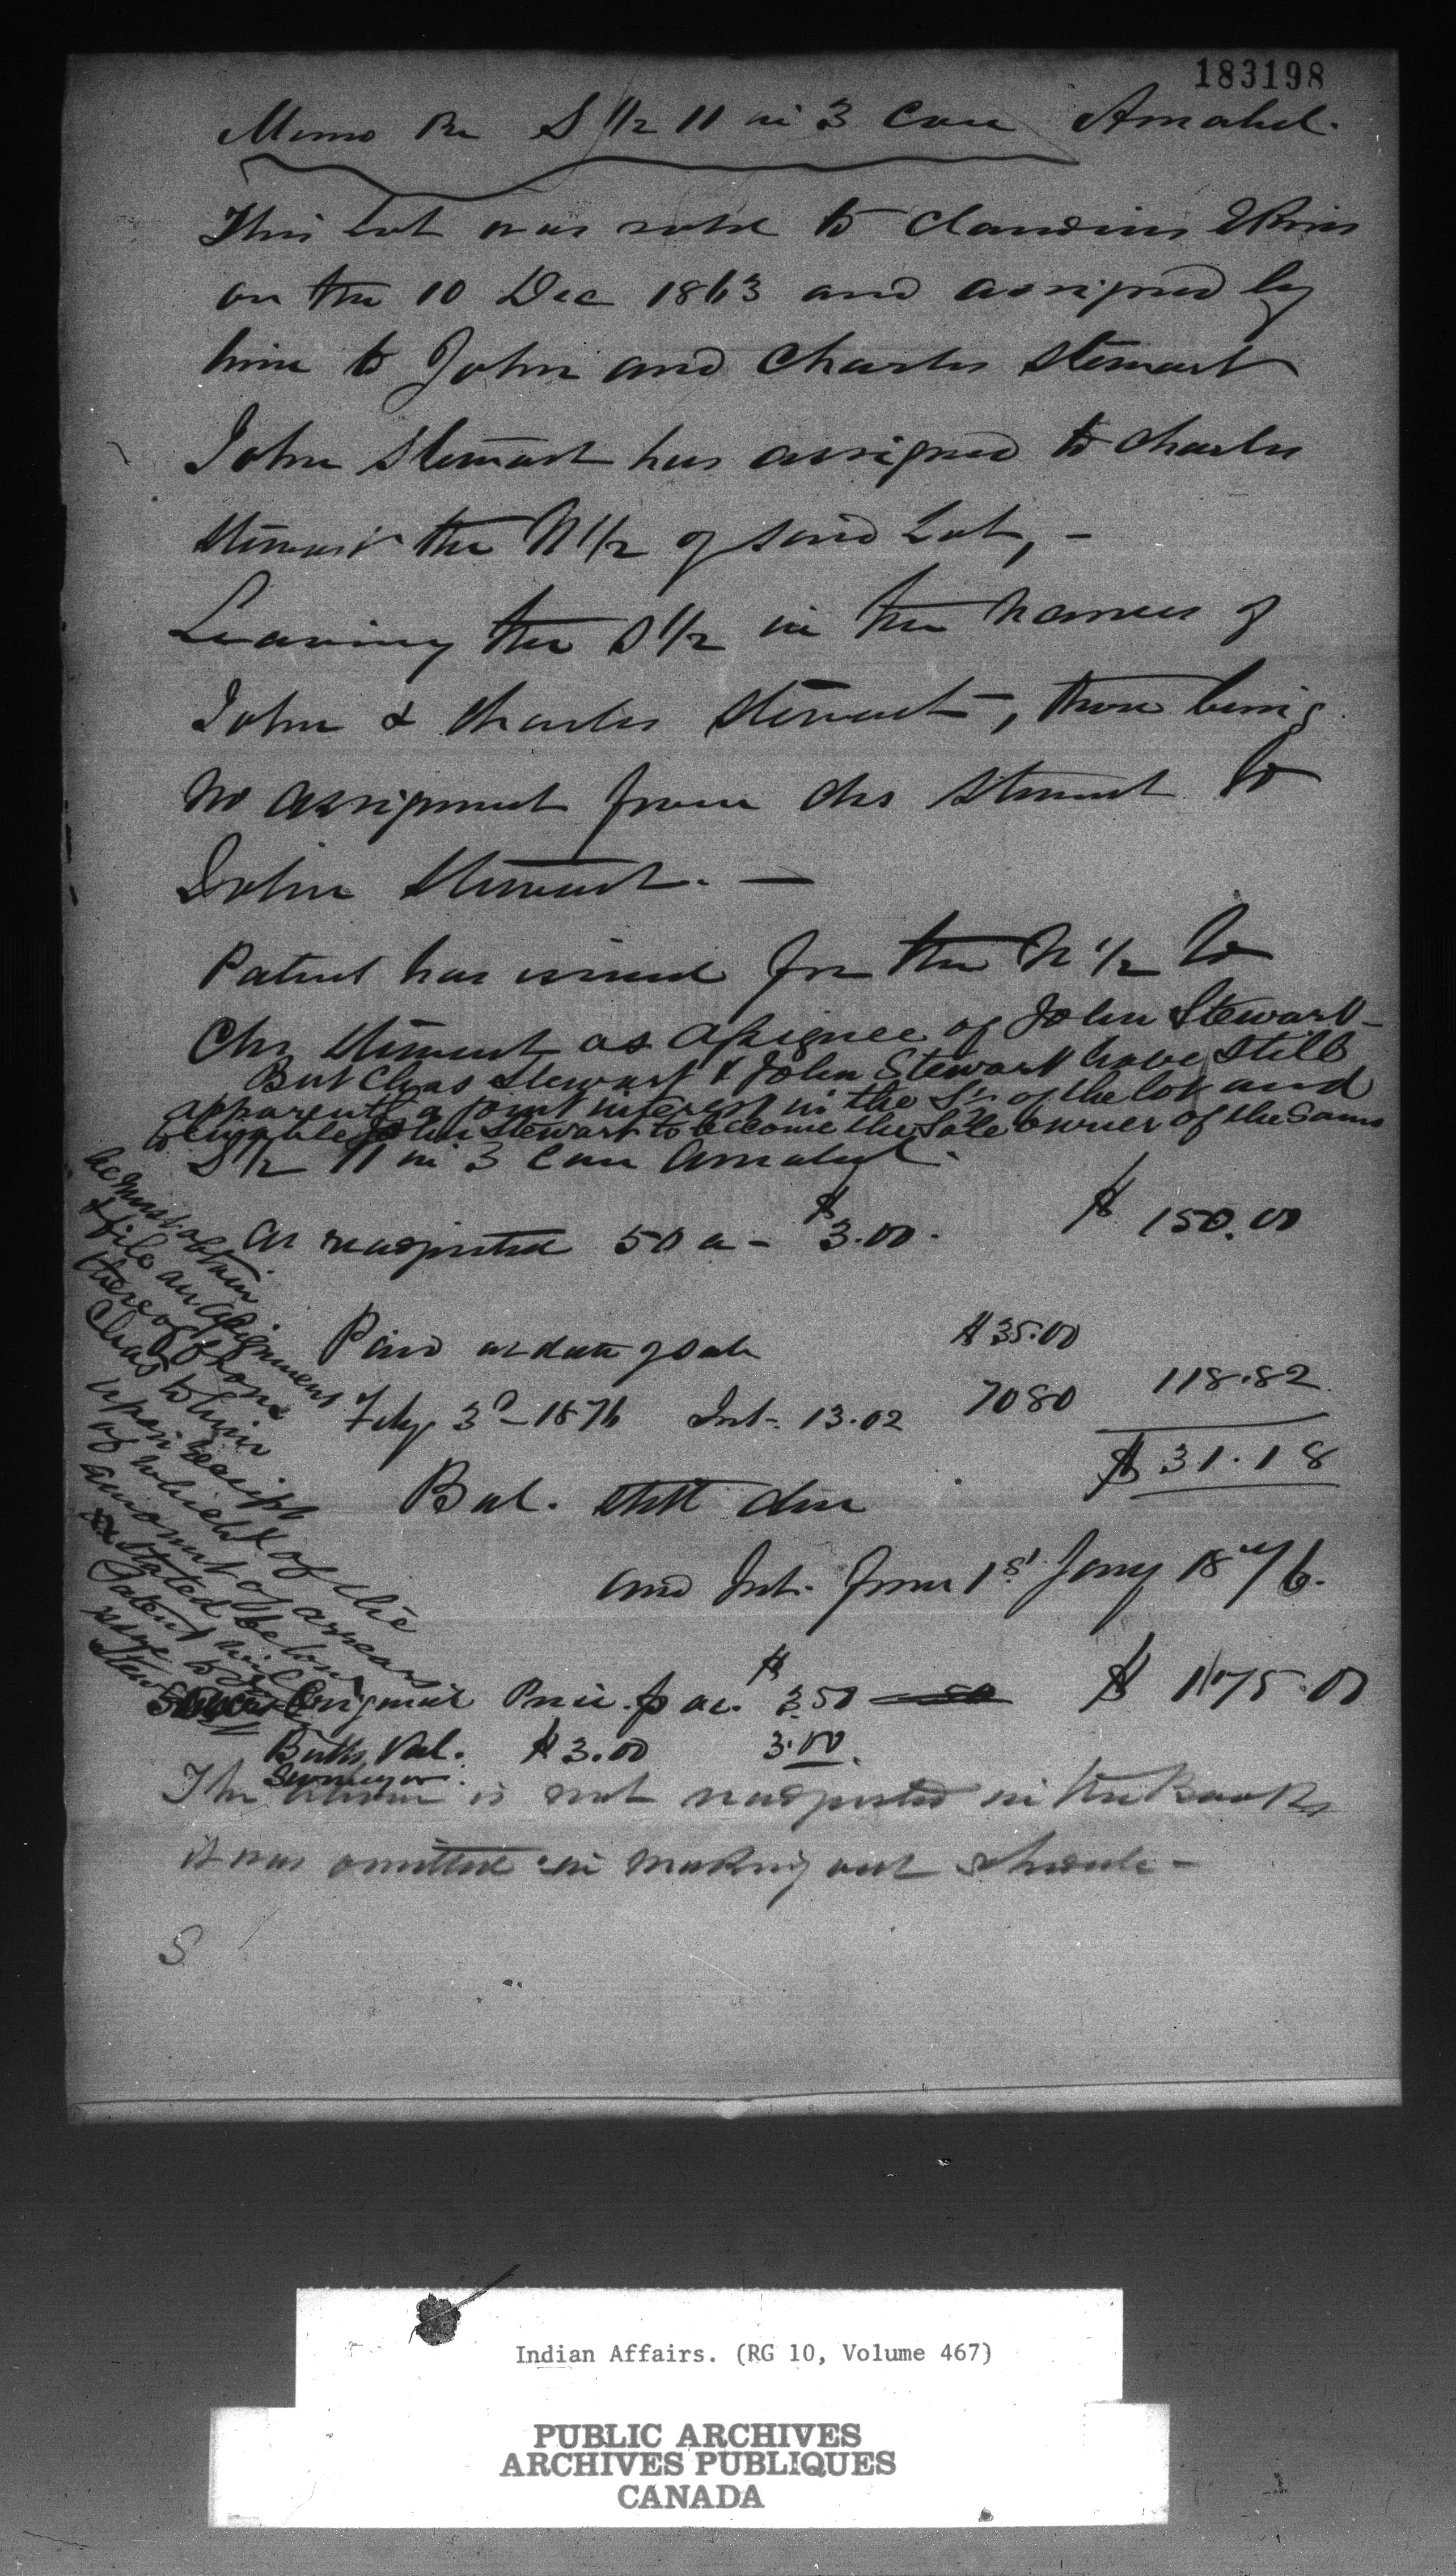 183198
Memo Re S 1/2 11 in 3 Con Amabel.
This Lot was sold to Claudius
on the 10 Dec 1863 and assigned by
him to John and Charles Stewart
John Stewart has assigned to Charles
Stewart the N 1/2 of said Lot, -
Leaving the S 1/2 in the names of
John & Charles Stewart, there being
no assignment from Chs Stewart to
John Stewart. —
Patent has issued for the N 1/2 to
Chs Stewart as assignee of John Stewart -
But Chas Stewart & John Stewart have still
apparently a joint interest in the S 1/2 of the lot and
to enable John Stewart to become the Sole owner of the Same
he must obtain
& file an assignment
thereof from
Chas to him
upon receipt
of which & of the
amount of arrears
as stated below
Patent will
issue to
Stewart
S 1/2 11 in 3 Con Amabel.
As reinspected 50 a - $3.00. $ 150.00
Paid at date of Sale $35.00
Feby 3d - 1876 Int. 13.02 70 80 118.82
Bal. still due $31.18
and Int. from 1st Jany 1876.
Original Price p ac. $3.50 $ 175.00
Val. $3.00 3.00.
The above is not reinspected in the Books
it was omitted in making out schedule -
S
Indian Affairs. (RG 10, Volume 467)
PUBLIC ARCHIVES
ARCHIVES PUBLIQUES
CANADA